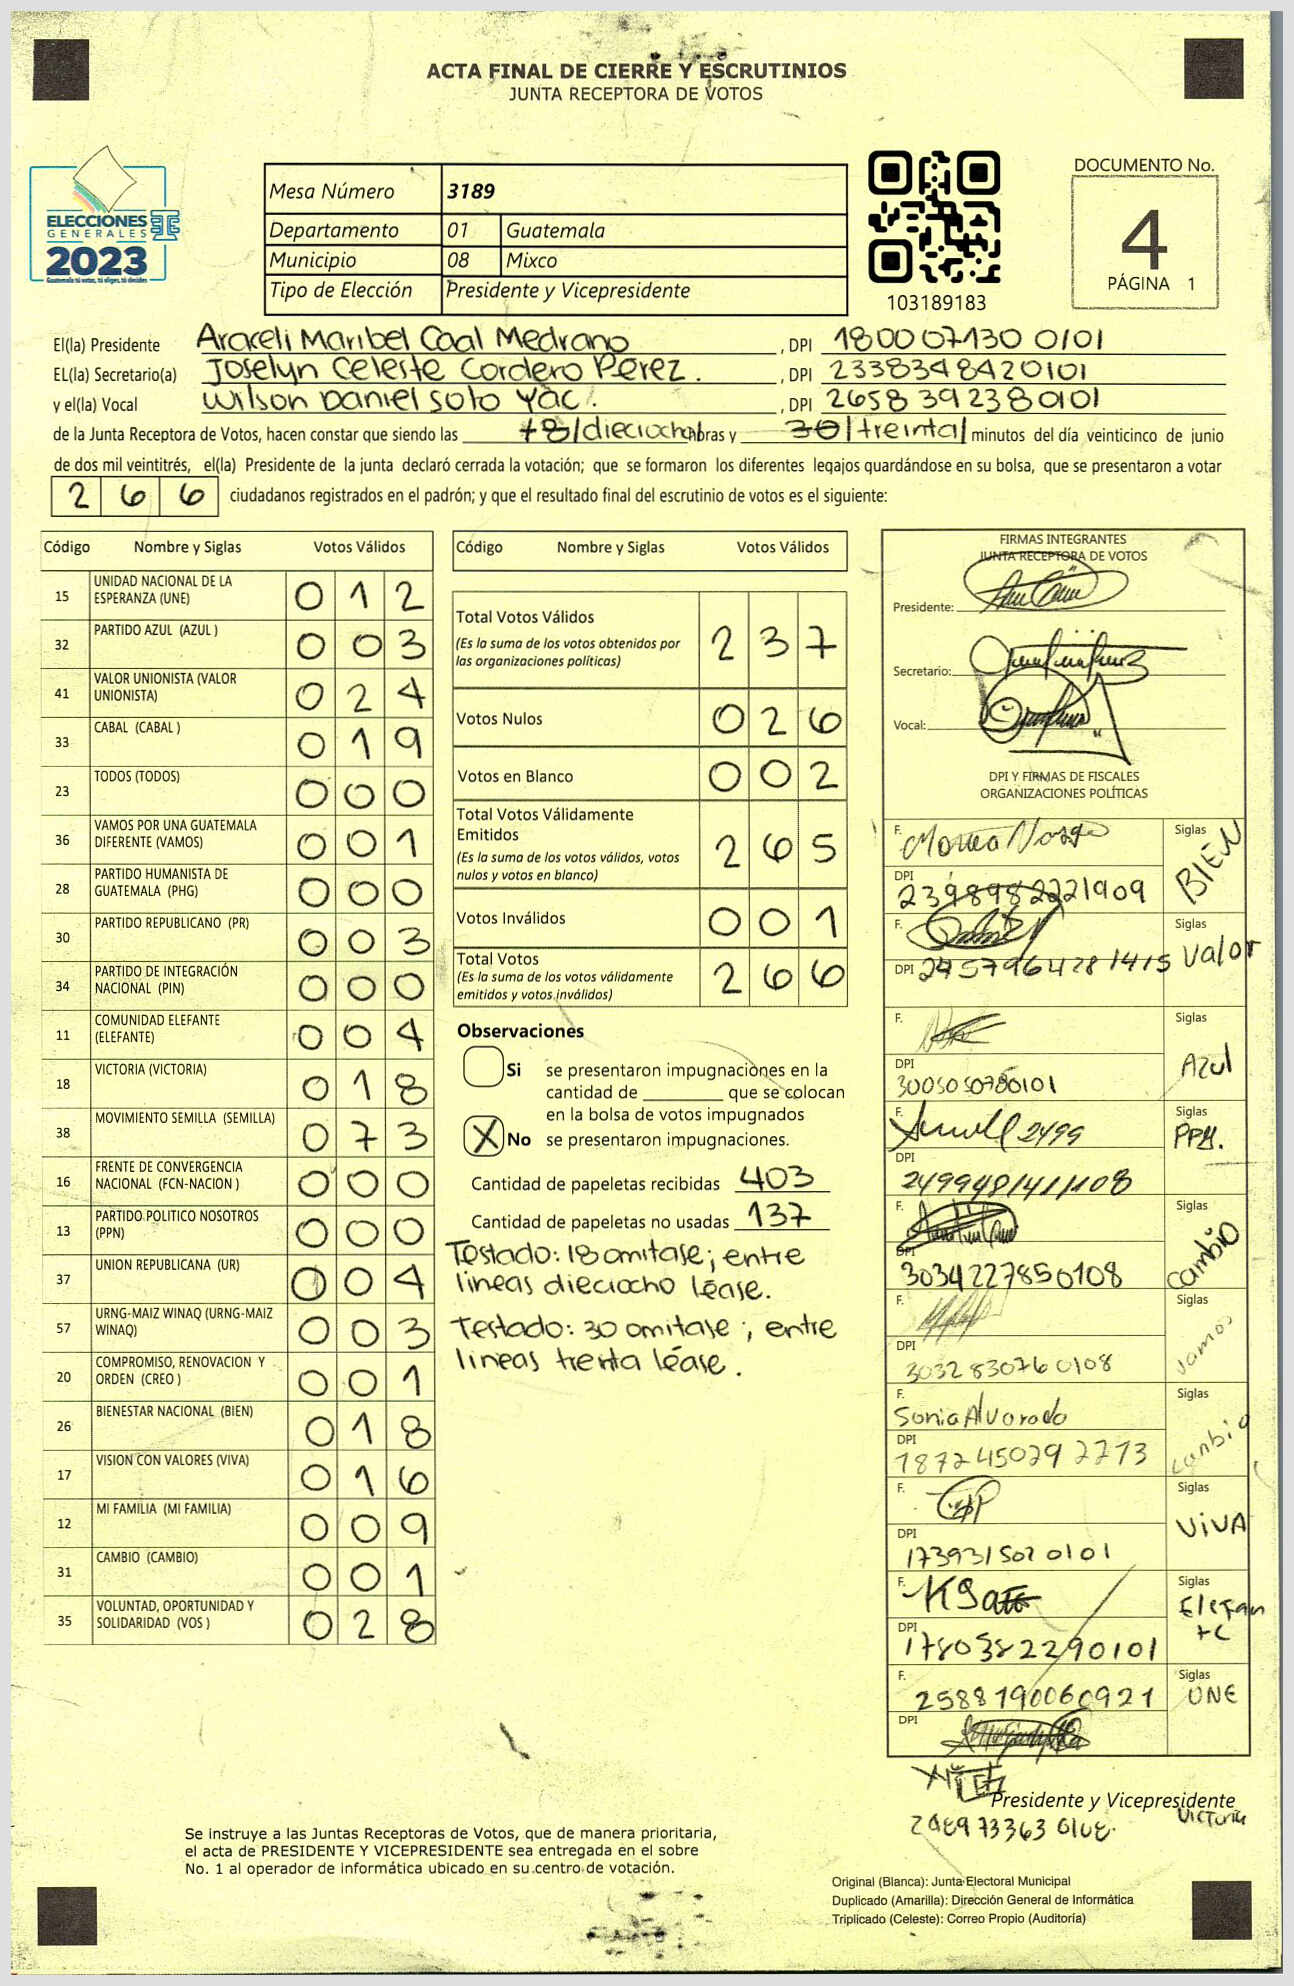 ACTA FINAL DE CIERRE Y ESCRUTINIOS
JUNTA RECEPTORA DE VOTOS
ELECCIONES
GENERALES
2023
Guatemala tú votas, tú eliges, tú decides
Mesa Número 3189
Departamento 01 Guatemala
Municipio 08 Mixco
Tipo de Elección Presidente y Vicepresidente
103189183
DOCUMENTO No.
4
PÁGINA 1
El(la) Presidente Araceli Maribel Caal Medrano, DPI 180007130 0101
EL(la) Secretario(a) Joselyn Celeste Cordero Pérez., DPI 2338348420101
y el(la) Vocal Wilson Daniel Soto Yac., DPI 2658392380101
de la Junta Receptora de Votos, hacen constar que siendo las 18/dieciocho/horas y 30/treinta/ minutos del día veinticinco de junio
de dos mil veintitrés, el(la) Presidente de la junta declaró cerrada la votación; que se formaron los diferentes legajos guardándose en su bolsa, que se presentaron a votar
2 6 6 ciudadanos registrados en el padrón; y que el resultado final del escrutinio de votos es el siguiente:
Código Nombre y Siglas Votos Válidos
15 UNIDAD NACIONAL DE LA ESPERANZA (UNE) 0 1 2
32 PARTIDO AZUL (AZUL ) 0 0 3
41 VALOR UNIONISTA (VALOR UNIONISTA) 0 2 4
33 CABAL (CABAL ) 0 1 9
23 TODOS (TODOS) 0 0 0
36 VAMOS POR UNA GUATEMALA DIFERENTE (VAMOS) 0 0 1
28 PARTIDO HUMANISTA DE GUATEMALA (PHG) 0 0 0
30 PARTIDO REPUBLICANO (PR) 0 0 3
34 PARTIDO DE INTEGRACIÓN NACIONAL (PIN) 0 0 0
11 COMUNIDAD ELEFANTE (ELEFANTE) 0 0 4
18 VICTORIA (VICTORIA) 0 1 8
38 MOVIMIENTO SEMILLA (SEMILLA) 0 7 3
16 FRENTE DE CONVERGENCIA NACIONAL (FCN-NACION ) 0 0 0
13 PARTIDO POLITICO NOSOTROS (PPN) 0 0 0
37 UNION REPUBLICANA (UR) 0 0 4
57 URNG-MAIZ WINAQ (URNG-MAIZ WINAQ) 0 0 3
20 COMPROMISO, RENOVACION Y ORDEN (CREO ) 0 0 1
26 BIENESTAR NACIONAL (BIEN) 0 1 8
17 VISION CON VALORES (VIVA) 0 1 6
12 MI FAMILIA (MI FAMILIA) 0 0 9
31 CAMBIO (CAMBIO) 0 0 1
35 VOLUNTAD, OPORTUNIDAD Y SOLIDARIDAD (VOS ) 0 2 8
Código Nombre y Siglas Votos Válidos
Total Votos Válidos 2 3 7
(Es la suma de los votos obtenidos por
las organizaciones políticas)
Votos Nulos 0 2 6
Votos en Blanco 0 0 2
Total Votos Válidamente
Emitidos 2 6 5
(Es la suma de los votos válidos, votos
nulos y votos en blanco)
Votos Inválidos 0 0 1
Total Votos 2 6 6
(Es la suma de los votos válidamente
emitidos y votos inválidos)
Observaciones
Si se presentaron impugnaciones en la
cantidad de ________ que se colocan
en la bolsa de votos impugnados
X No se presentaron impugnaciones.
Cantidad de papeletas recibidas 403
Cantidad de papeletas no usadas 137
Testado: 18 omitase; entre
lineas dieciocho Léase.
Testado: 30 omitase; entre
lineas treinta léase.
FIRMAS INTEGRANTES
JUNTA RECEPTORA DE VOTOS
Presidente:
Secretario:
Vocal:
DPI Y FIRMAS DE FISCALES
ORGANIZACIONES POLÍTICAS
F. Siglas BIEN
DPI 2398982221909
F. Siglas Valor
DPI 2457964281415
F. Siglas Azul
DPI 3005050780101
F. 2499 Siglas PPN.
DPI 2499481411108
F. Siglas Cambio
DPI 3034227850108
F. Siglas Vamos
DPI 3032830760108
F. Sonia Alvarado Siglas Canbio
DPI 1872450292213
F. Siglas ViVA
DPI 1739315020101
F. Siglas Elefante
DPI 1780382290101
F. 2588190060921 Siglas UNE
DPI
Presidente y Vicepresidente
Victoria
Se instruye a las Juntas Receptoras de Votos, que de manera prioritaria,
el acta de PRESIDENTE Y VICEPRESIDENTE sea entregada en el sobre
No. 1 al operador de informática ubicado en su centro de votación.
Original (Blanca): Junta Electoral Municipal
Duplicado (Amarilla): Dirección General de Informática
Triplicado (Celeste): Correo Propio (Auditoría)